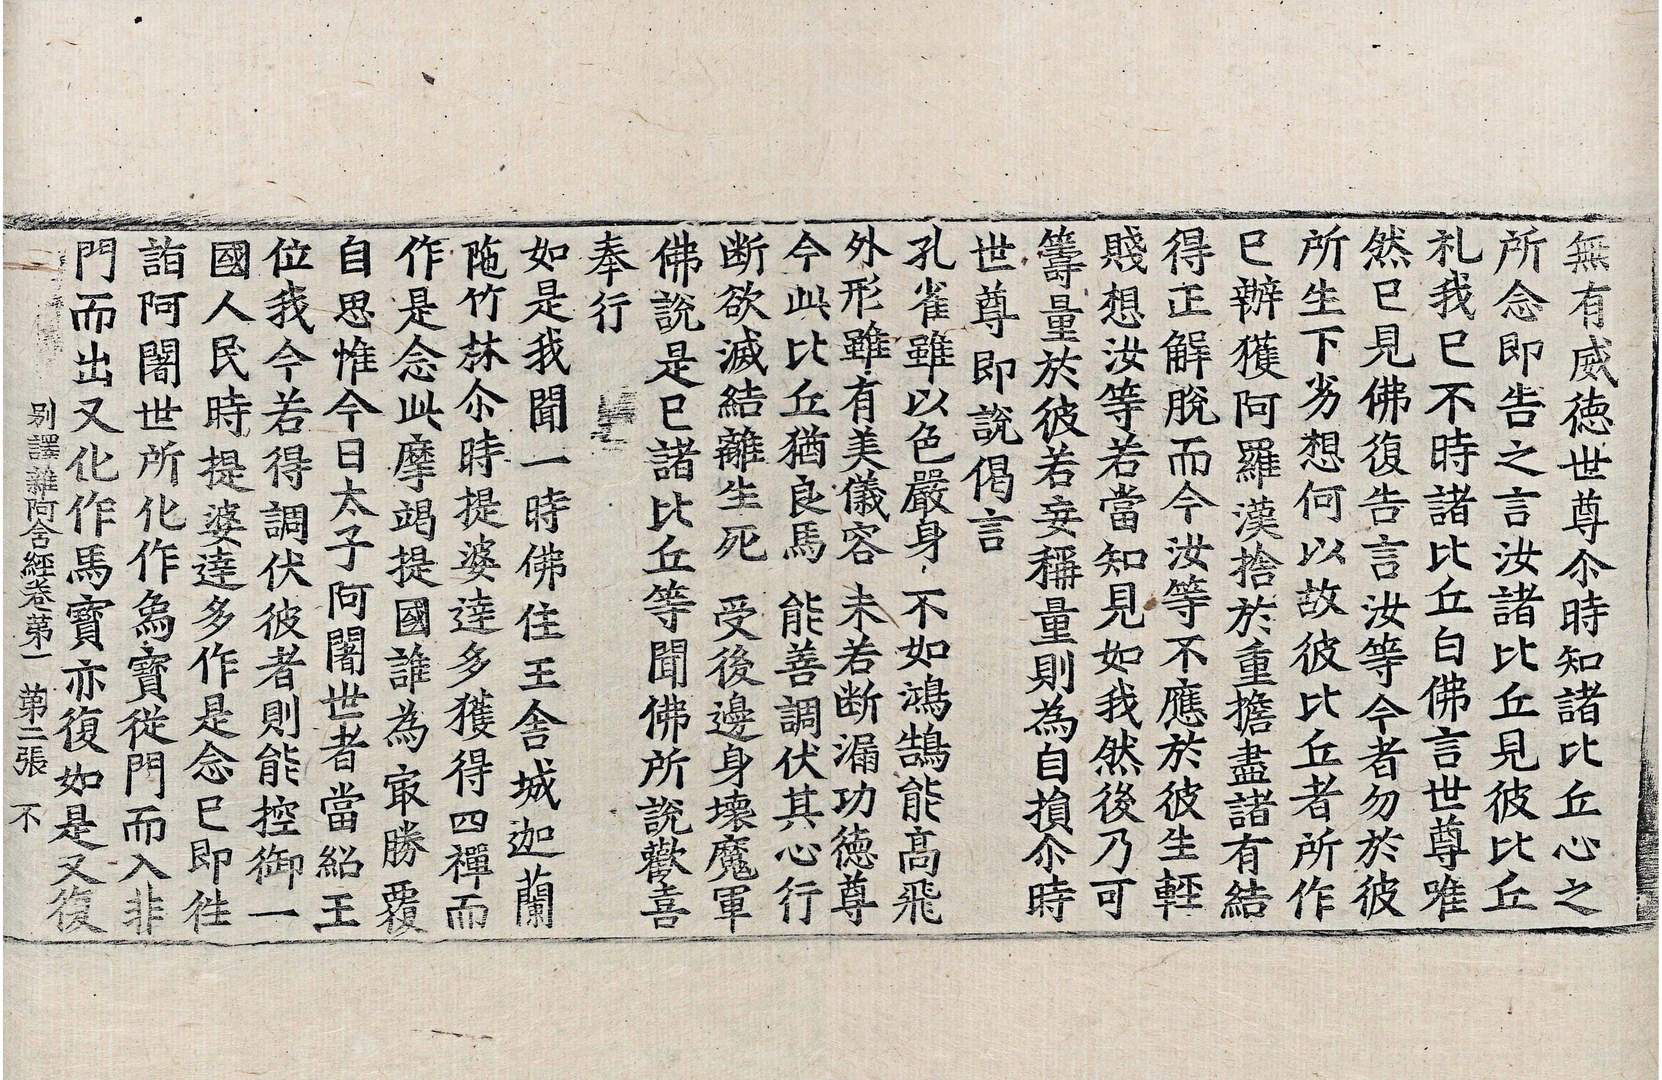 無有威徳世尊尒時知諸比丘心之
所念即告之言汝諸比丘見彼比丘
礼我已不時諸比丘白佛言世尊唯
然已見佛復告言汝等今者勿於彼
所生下劣想何以故彼比丘者所作
已辦獲阿羅漢捨於重擔盡諸有結
得正解脫而今汝等不應於彼生輕
賤想汝等若當知見如我然後乃可
籌量於彼若妄稱量則為自損尒時
世尊即說偈言
孔雀雖以色嚴身 不如鴻鵠能高飛
外形雖有美儀容 未若断漏功徳尊
今此比丘猶良馬 能善調伏其心行
断欲滅結離生死 受後邊身壞魔軍
佛說是已諸比丘等聞佛所說歡喜
奉行
如是我聞一時佛住王舍城迦蘭
陁竹林尒時提婆達多獲得四禪而
作是念此摩竭提國誰為㝡勝覆
自思惟今日太子阿闍世者當紹王
位我今若得調伏彼者則能控御一
國人民時提婆達多作是念已即徃
詣阿闍世所化作烏寶從門而入非
門而出又化作馬寶亦復如是又復
別譯雜阿含經卷苐一 苐二張 不